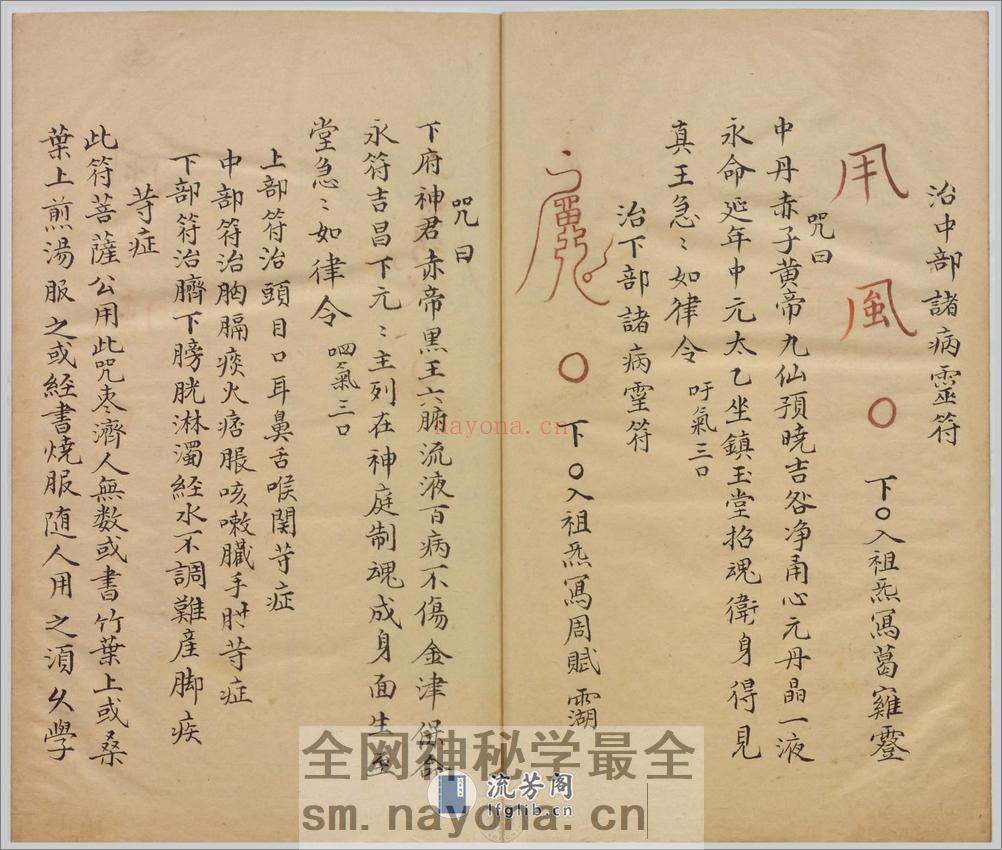 治中部諸病靈符
用風〇
下〇入祖炁寫葛雍霻
咒曰
中丹赤子黄帝九仙預曉吉咎净甬心元丹晶一液
永命延年中元太乙坐鎮玉堂招魂衛身得見
真王急〻如律令 吁氣三口
治下部諸病靈符
〇
下〇入祖炁寫周賦霩
咒曰
下府神君赤帝黑王六腑流液百病不傷金津保命
永符吉昌下元〻主列在神庭制魂成身面生玉
堂急〻如律令 呬氣三口
上部符治頭目口耳鼻舌喉関䓁症
中部符治胸膈痰火痞脹咳嗽臟手肘䓁症
下部符治臍下膀胱淋濁経水不調難産脚疾
䓁症
此符菩薩公用此咒枣濟人無数或書竹葉上或桑
葉上煎湯服之或経書焼服随人用之須久學
nayona.cn
全网神秘学最全
sm.nayona.cn
流芳阁
lfglib.cn